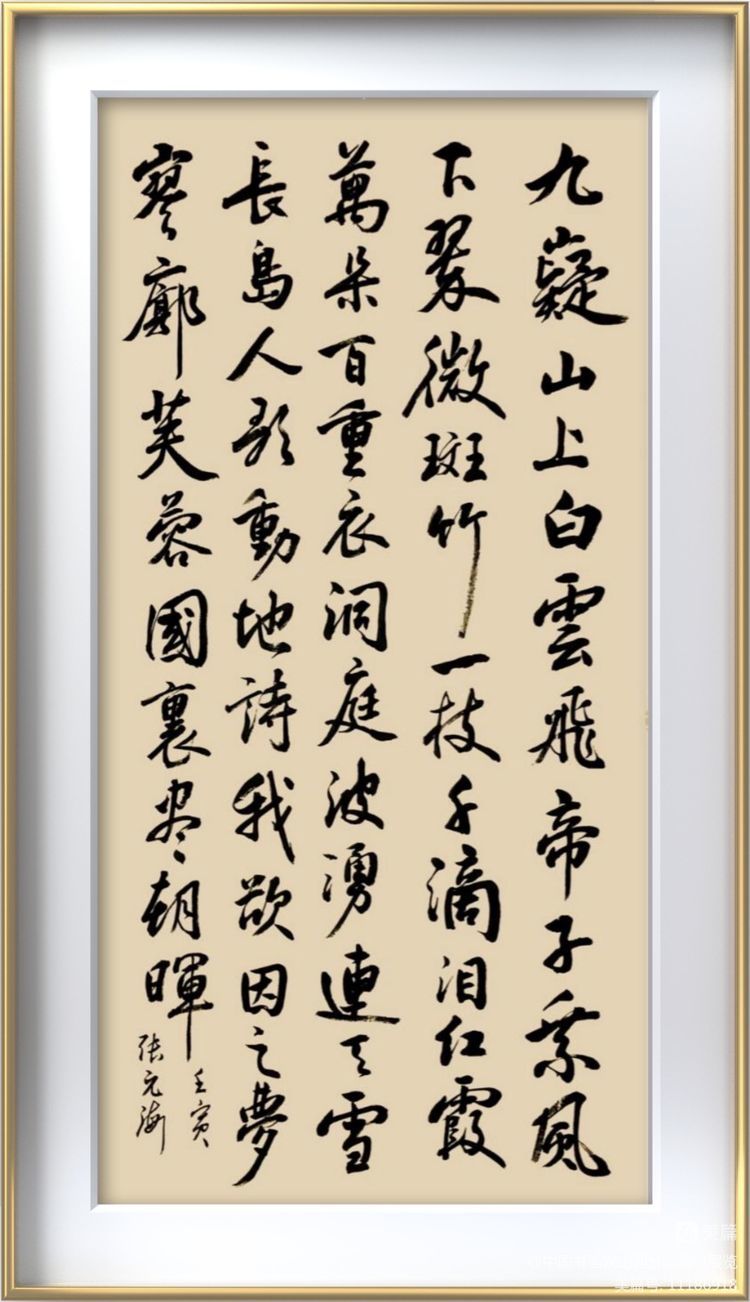 九嶷山上白雲飛帝子乘風
下翠微斑竹一枝千滴泪红霞
萬朵百重衣洞庭波湧連天雪
長島人歌動地詩我欲因之夢
寥廓芙蓉國裏尽朝暉
壬寅
张元海
美篇